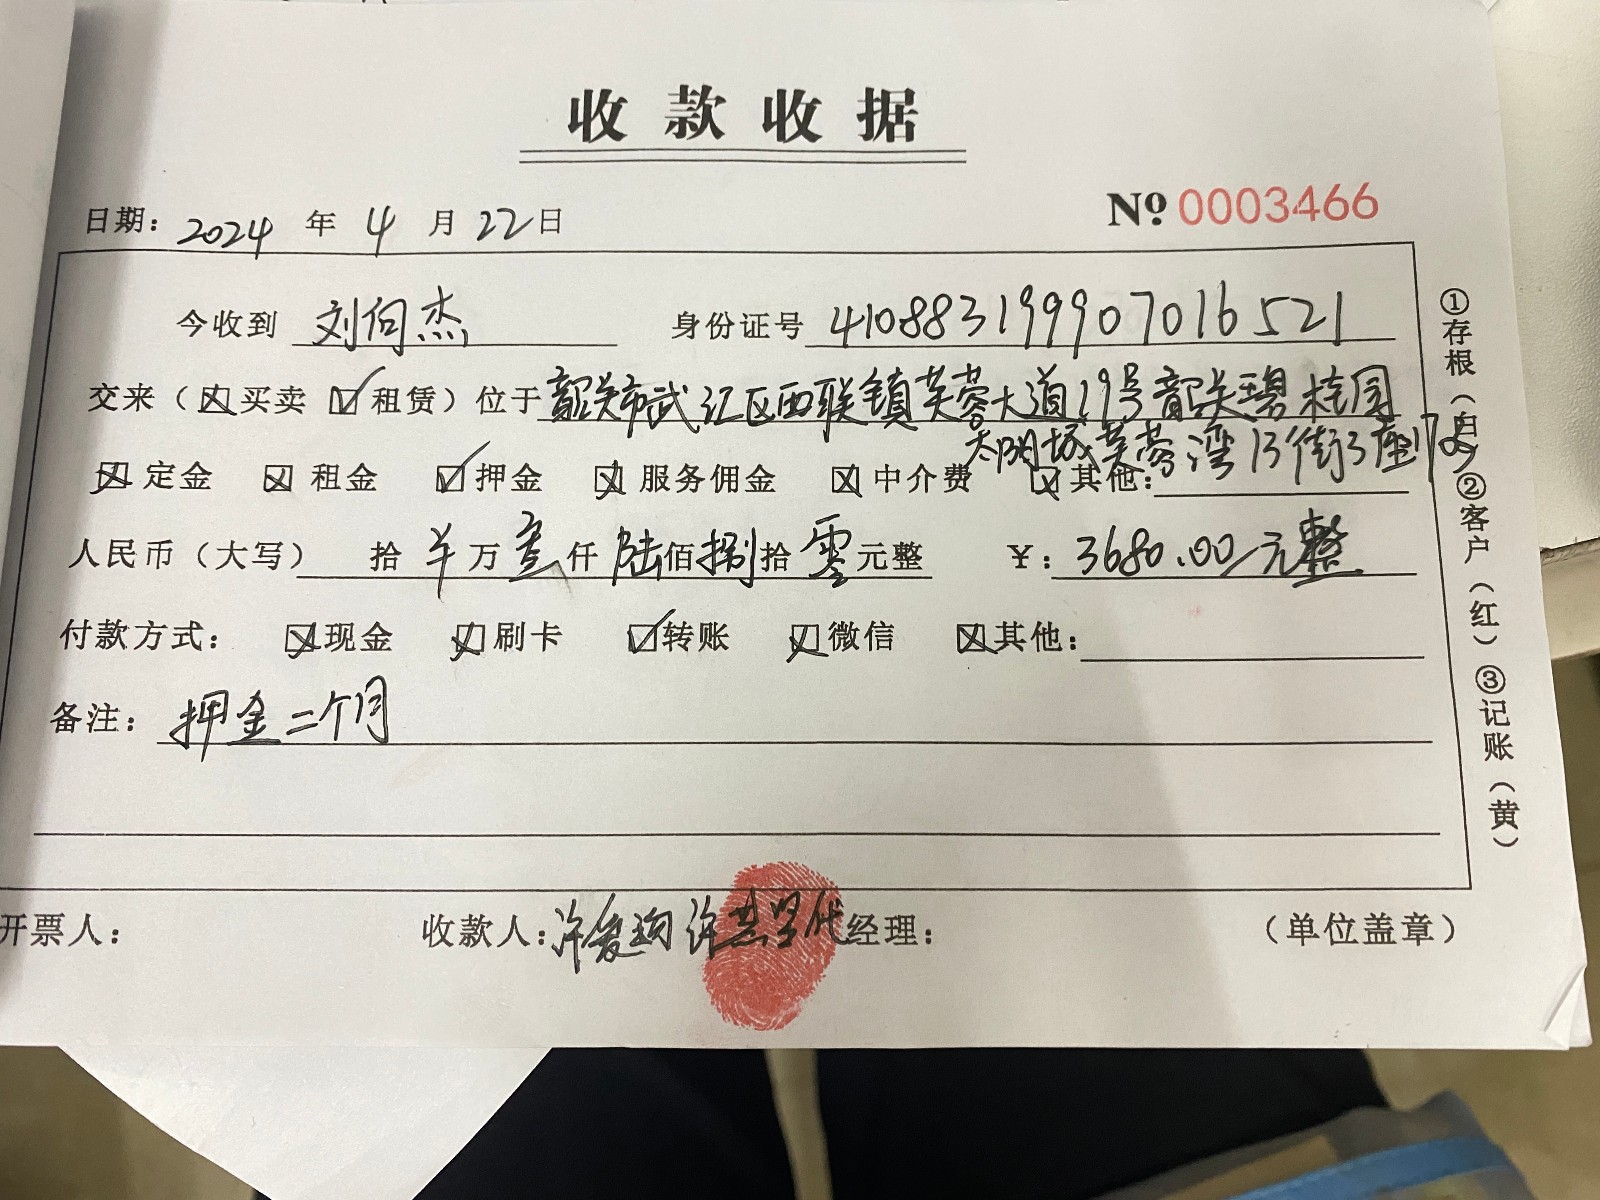 收款收据
日期：2024年4月22日
№ 0003466
今收到 刘向杰 身份证号 410883199907016521
交来（☒买卖 ☑租赁）位于韶关市武江区西联镇芙蓉大道19号韶关碧桂园
太阳城芙蓉湾13街3座
☒定金 ☒租金 ☑押金 ☒服务佣金 ☒中介费 ☒其他：
人民币（大写） 拾 羊万 仟陆佰捌拾零元整 ¥：3680.00/元整
付款方式： ☒现金 ☒刷卡 ☑转账 ☒微信 ☒其他：
备注：押金二个月
开票人： 收款人：许 许 代 经理： （单位盖章）
①存根（白）②客户（红）③记账（黄）